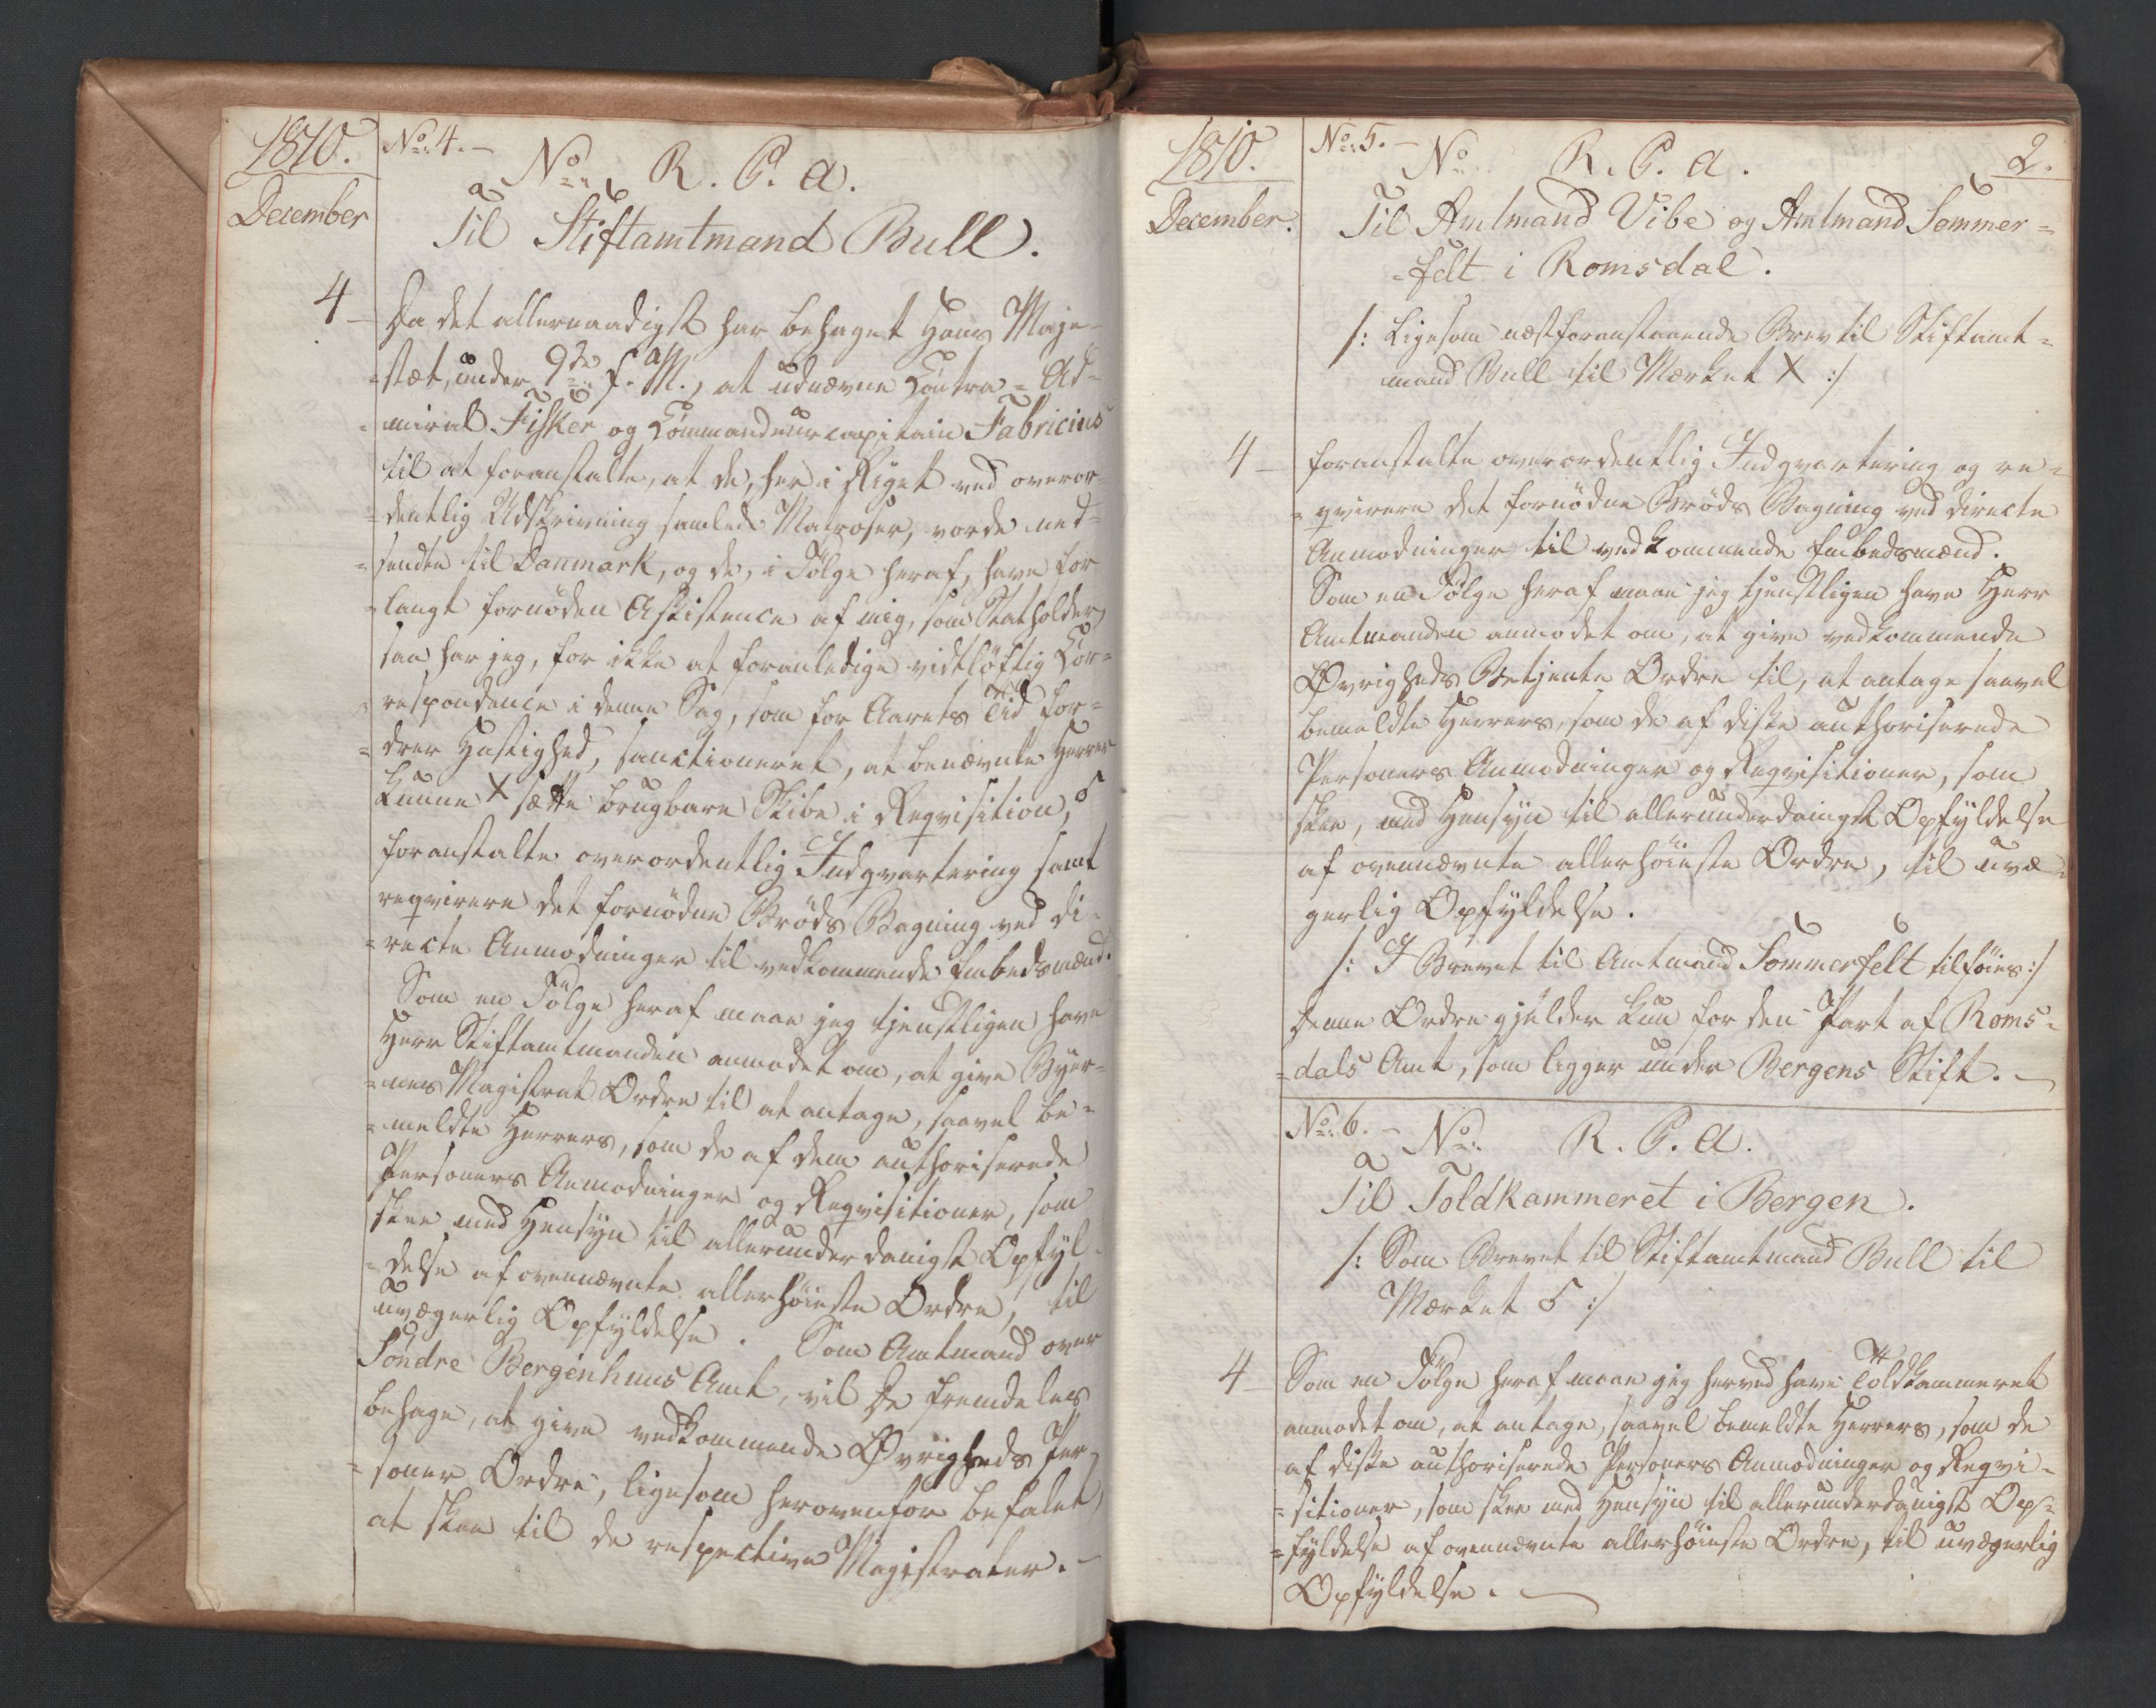 1810.
December
No. 4.-
No. R. C. A.
Til Stiftamtmand Bull.
4 -
Da det allernaadigst har behaget Hans Maje-
=stæt, under 9de f. M., at udnævne Contra-Ad-
=miral Fisker og Commandeurcapitain Fabricius
til at foranstalte, at de, her i Riget ved overor-
=dentlig Udskrivning samlede Matroser, vorde ned-
=sendte til Danmark, og de, i Følge heraf, have for
=langt fornøden Assistence af mig, som Statholder,
saa har jeg, for ikke at foranledige vidtløftig Cor-
=respondence i denne Sag, som for Aarets Tid for-
=drer Hastighed, sanctioneret, at benævnte Herrer
kunne X sætte brugbare Skibe i Reqvisition, 5
foranstalte overordentlig Indqvartering samt
reqvirere det fornødne Brøds Bagning ved di-
=recte Anmodninger til vedkommende Embedsmænd.
Som en Følge heraf maae jeg tjenstligen have
Herr Stiftamtmanden anmodet om, at give Byer-
=nes Magistrat Ordre til at antage, saavel be-
=meldte Herrers, som de af dem authoriserede
Personers Anmodninger og Reqvisitioner, som
skee med Hensyn til allerunderdanigst Opfyl-
=delse af ovennævnte allerhøieste Ordre, til
uvægerlig Opfyldelse. Som Amtmand over
Søndre Bergenhuus Amt, vil De fremdeles
behage, at give vedkommende Øvrigheds Per-
=soner Ordre, ligesom herovenfor befalet,
at skee til de respective Magistrater.-
1810.
December.
No. 5.-
2.
No. R. C. A.
Til Amtmand Vibe og Amtmand Sommer=
=felt i Romsdal.
/: Ligesom næstforanstaaende Brev til Stiftamt=
mand Bull til Mærket X :/
4 -
foranstalte overordentlig Indqvartering og re=
=qvirere det fornødne Brøds Bagning ved directe
Anmodninger til vedkommende Embedsmænd.
Som en Følge heraf maae jeg tjenstligen have Herr
Amtmanden anmodet om, at give vedkommende
Øvrigheds Betjente Ordre til, at antage saavel
bemeldte Herrers, som de af disse authoriserede
Personers Anmodninger og Reqvisitioner, som
skee, med Hensyn til allerunderdanigst Opfyldelse
af ovennævnte allerhøieste Ordre, til uvæ=
gerlig Opfyldelse.
/: I Brevet til Amtmand Sommerfelt tilføies :/
Denne Ordre gjelder kun for den Part af Roms=
=dals Amt, som ligger under Bergens Stift.-
No. 6.-
No. R. C. A.
Til Toldkammeret i Bergen.
/: Som Brevet til Stiftamtmand Bull til
Mærket 5 :/
4 -
Som en Følge heraf maae jeg herved have Toldkammeret
anmodet om, at antage, saavel bemeldte Herrers, som de
af disse authoriserede Personers Anmodninger og Reqvi=
=sitioner, som skee med Hensyn til allerunderdanigst Op=
=fyldelse af ovennævnte allerhøieste Ordre, til uvægerlig
Opfyldelse.-